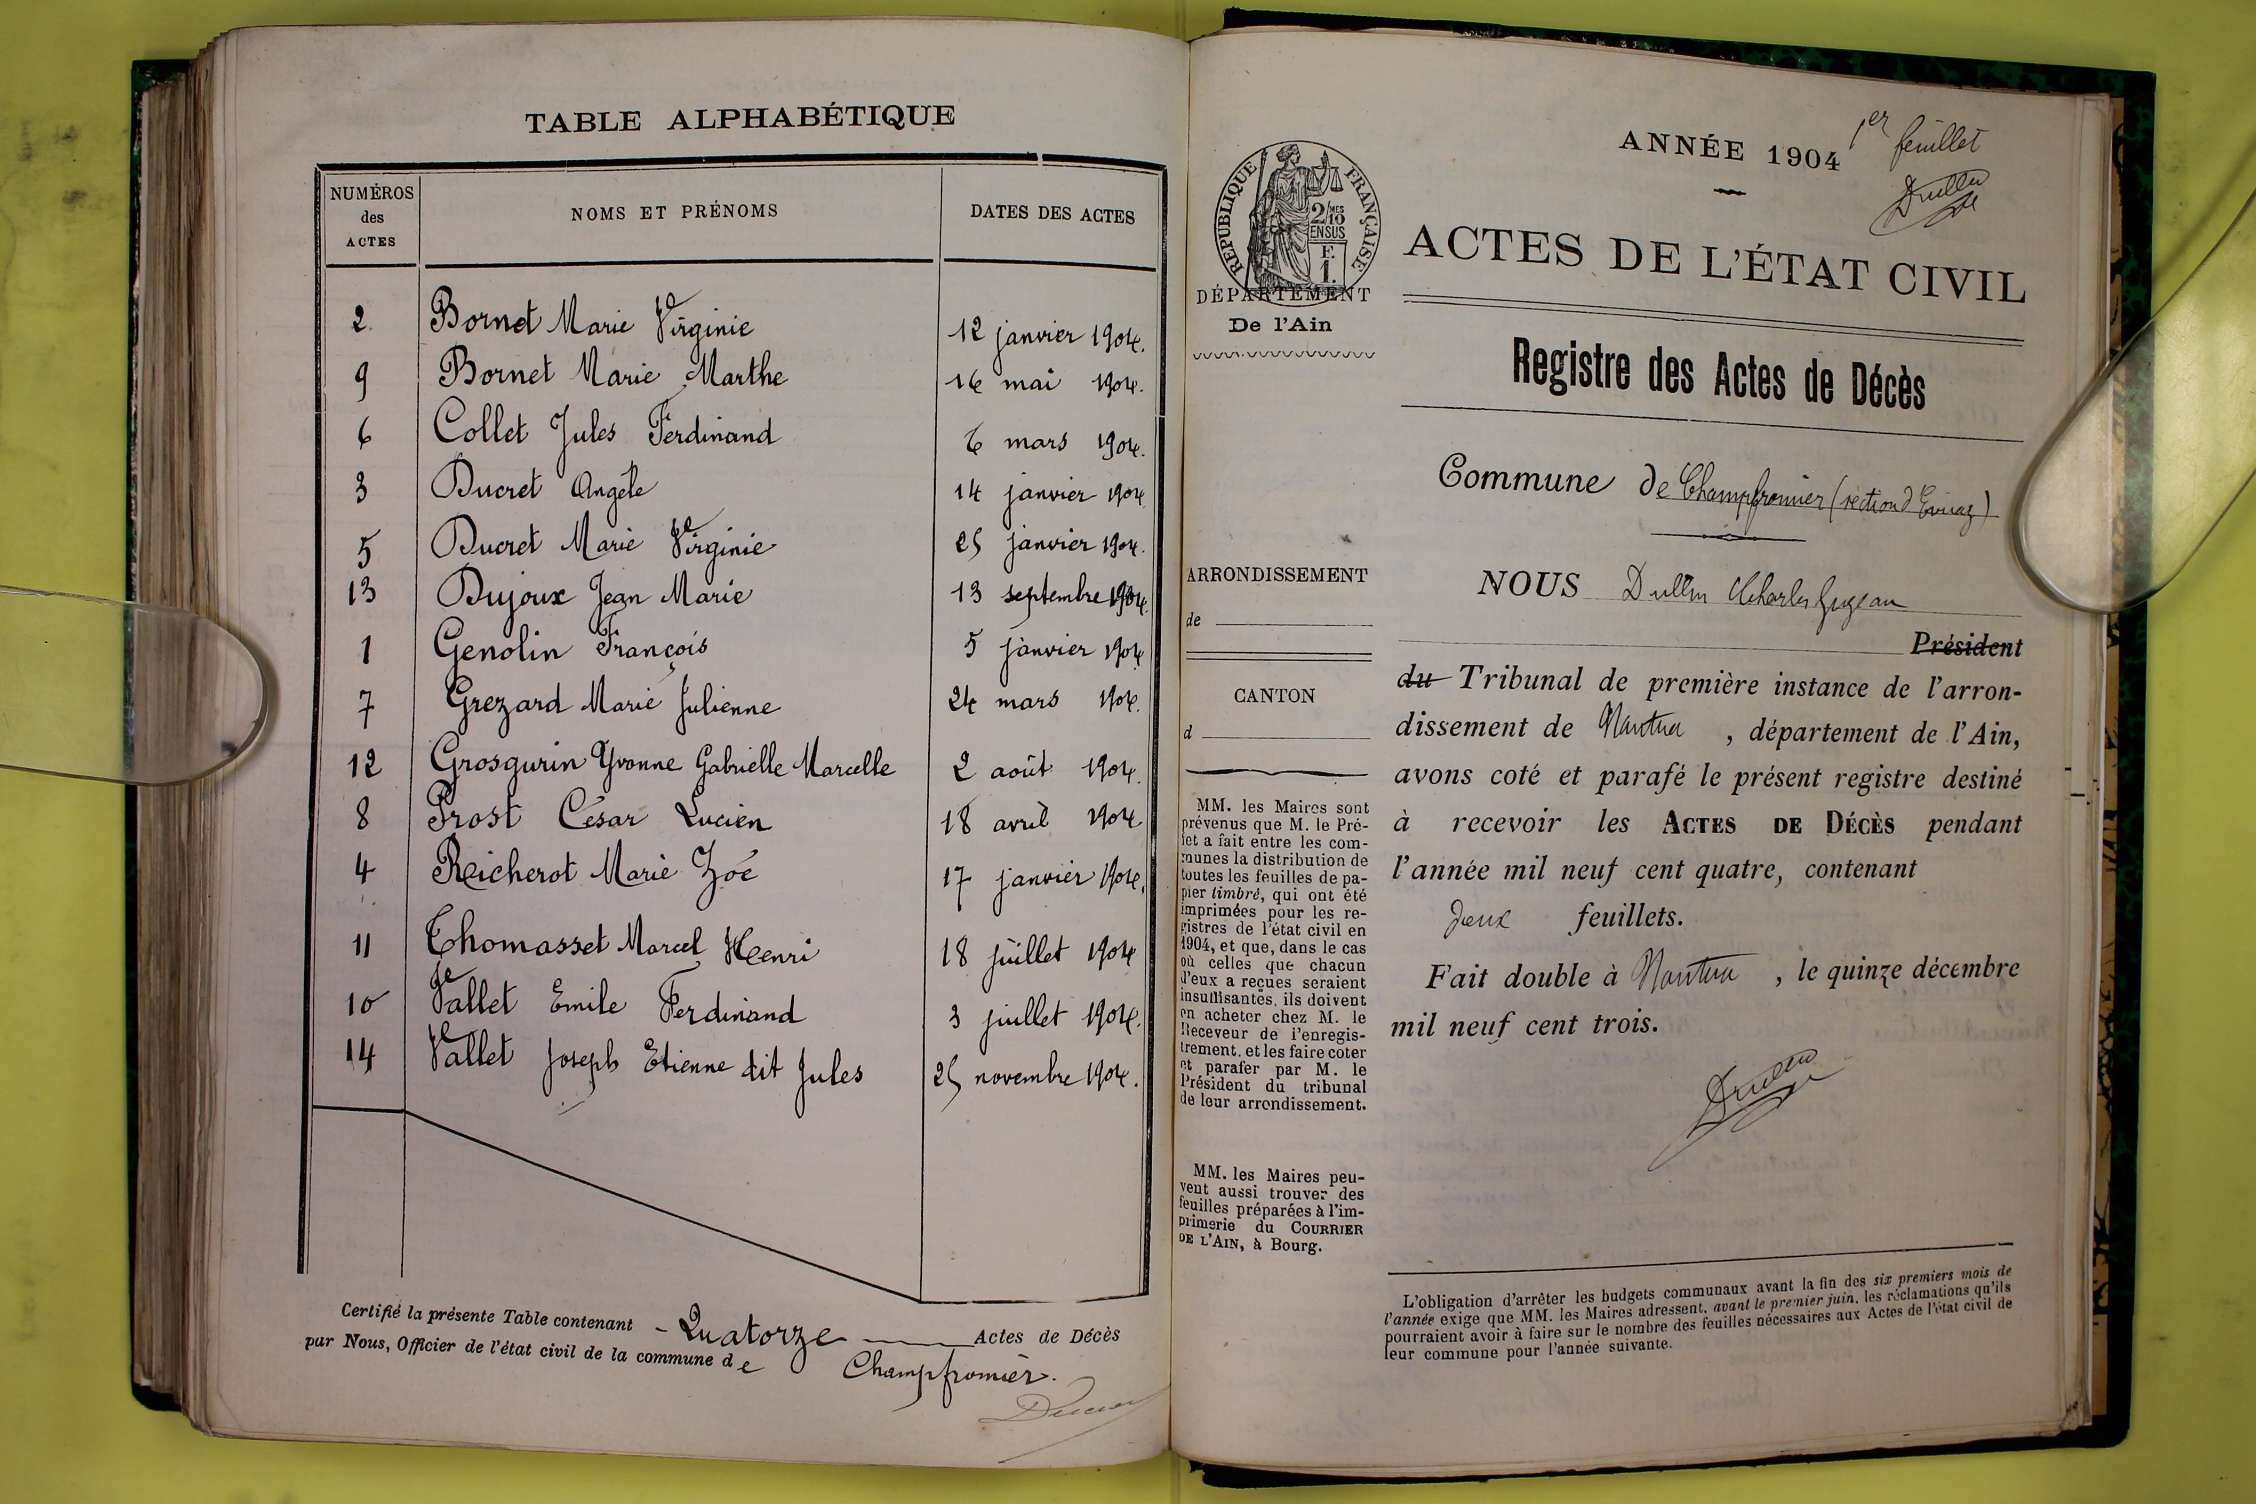 TABLE ALPHABÉTIQUE
NUMÉROS des ACTES
NOMS ET PRÉNOMS
DATES DES ACTES
2 Bornet Marie Virginie 12 janvier 1904.
9 Bornet Marie Marthe 16 mai 1904.
6 Collet Jules Ferdinand 6 mars 1904.
3 Ducret Angèle 14 janvier 1904
5 Ducret Marie Virginie 25 janvier 1904.
13 Dujoux Jean Marie 13 septembre 1904.
1 Genolin François 5 janvier 1904
7 Grezard Marie Julienne 24 mars 1904.
12 Grosgurin Yvonne Gabrielle Marcelle 2 août 1904.
8 Prost César Lucien 18 avril 1904
4 Reicherot Marie Zoé 17 janvier 1904.
11 Thomasset Marcel Henri 18 juillet 1904
10 Vallet Emile Ferdinand 3 juillet 1904.
14 Vallet Joseph Etienne dit Jules 25 novembre 1904.
Certifié la présente Table contenant - Quatorze - Actes de Décès
par Nous, Officier de l'état civil de la commune de Champfromier.
RÉPUBLIQUE FRANÇAISE
2/10 MES
EN SUS
F.
1.
DÉPARTEMENT
De l'Ain
ARRONDISSEMENT
de
CANTON
d
MM. les Maires sont
prévenus que M. le Pré-
fet a fait entre les com-
munes la distribution de
toutes les feuilles de pa-
pier timbré, qui ont été
imprimées pour les re-
gistres de l'état civil en
1904, et que, dans le cas
où celles que chacun
d'eux a reçues seraient
insuffisantes, ils doivent
en acheter chez M. le
Receveur de l'enregis-
trement, et les faire coter
et parafer par M. le
Président du tribunal
de leur arrondissement.
MM. les Maires peu-
vent aussi trouver des
feuilles préparées à l'im-
primerie du COURRIER
DE L'AIN, à Bourg.
ANNÉE 1904
1er feuillet
ACTES DE L'ÉTAT CIVIL
Registre des Actes de Décès
Commune de Champfromier (section d'Evuaz)
NOUS Dullin Charles
Président
du Tribunal de première instance de l'arron-
dissement de Nantua, département de l'Ain,
avons coté et parafé le présent registre destiné
à recevoir les ACTES DE DÉCÈS pendant
l'année mil neuf cent quatre, contenant
deux feuillets.
Fait double à Nantua, le quinze décembre
mil neuf cent trois.
L'obligation d'arrêter les budgets communaux avant la fin des six premiers mois de
l'année exige que MM. les Maires adressent, avant le premier juin, les réclamations qu'ils
pourraient avoir à faire sur le nombre des feuilles nécessaires aux Actes de l'état civil de
leur commune pour l'année suivante.